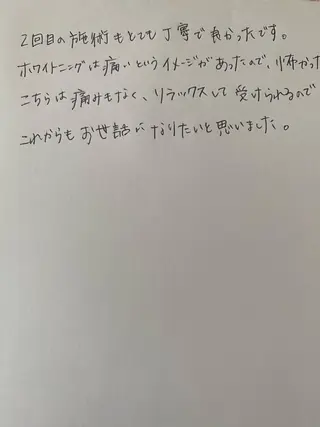 2回目の施術もとても丁寧で良かったです。
ホワイトニングは痛いというイメージがあったので、怖かった
こちらは痛みもなく、リラックスして受けられるので
これからもお世話になりたいと思いました。